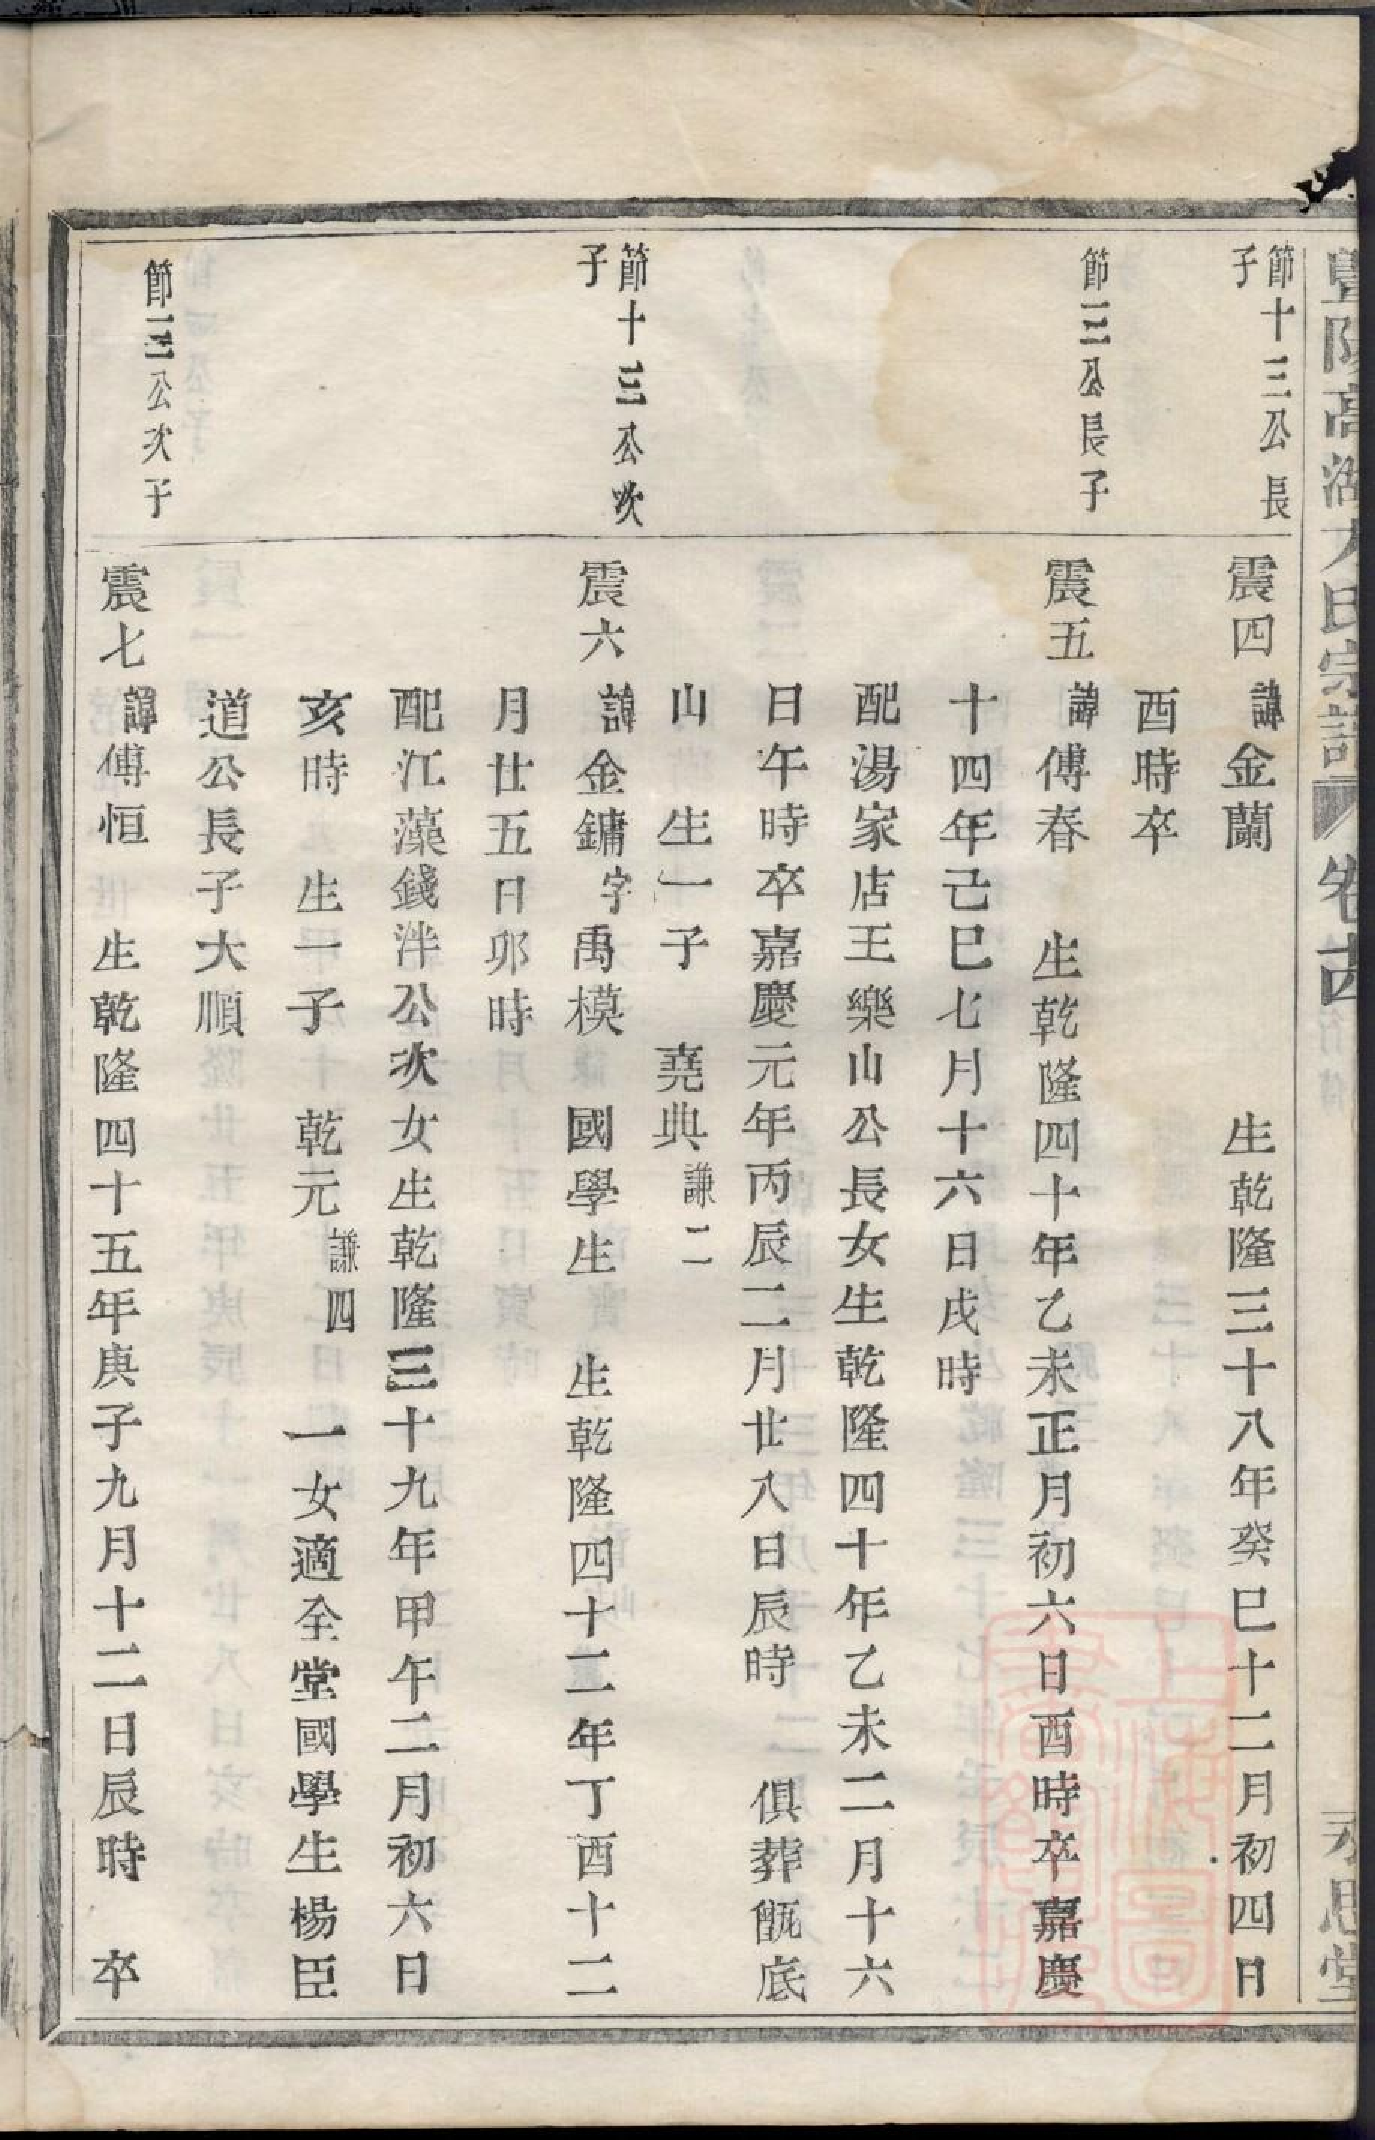 節十三公長
子
震四諱金蘭 生乾隆三十八年癸巳十二月初四日
酉時卒
節三公長子
震五諱傅春 生乾隆四十年乙未正月初六日酉時卒嘉慶
十四年己巳七月十六日戌時
配湯家店王樂山公長女生乾隆四十年乙未二月十六
日午時卒嘉慶元年丙辰二月廿八日辰時 俱葬甑底
山 生一子 堯典謙二
節十三公次
子
震六諱金鏞字禹模 國學生 生乾隆四十二年丁酉十二
月廿五日卯時
配江藻錢泮公次女生乾隆三十九年甲午二月初六日
亥時 生一子 乾元謙四 一女適全堂國學生楊臣
道公長子大順
節三公次子
震七諱傅恒 生乾隆四十五年庚子九月十二日辰時 卒